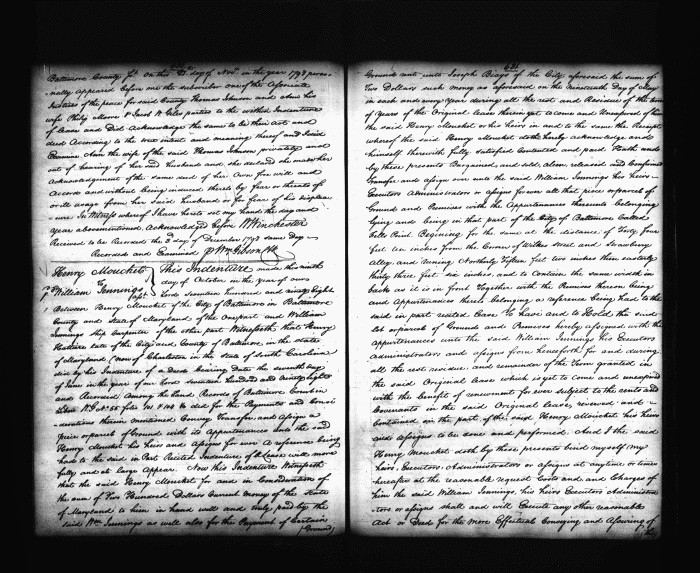 Baltimore County, on this day of Nov. in the year 1798 perso-
nally appeared before me the subscriber one of the aforesaid
Justices of the peace for said County Thomas Johnson and Ann his
wife Philip Moore parties to the within Indenture
of Lease and Did Acknowledge the same to be their act and
deed According to the true intent and meaning thereof and I did
Examine Ann the wife of the said Thomas Johnson privately and
out of hearing of her said Husband and she declared she made her
Acknowledgement of the same deed of her Own free will and
Accord and without being induced thereto by fear or threats of
or ill usage from her said husband or for fear of his displea-
sure In Witness whereof I have hereto set my hand the day and
year abovementioned Acknowledg'd before W Winchester
Received to be Recorded the 3 day of December 1798 same Day
Recorded and Examined Wm Gibson Clk
Henry Moucket
to
William Jennings
This Indenture made this ninth
day of October in the year of our
Lord Seventeen hundred and ninety Eight
Between Henry Moucket of the City of Baltimore in Baltimore
County and State of Maryland of the One part and William
Jennings Ship Carpenter of the other part Witnesseth that Henry
late of the City and County of Baltimore in the state
of Maryland (now of Charleston in the state of South Carolina
did by his Indenture of a Deed bearing Date the seventh day
of June in the year of our Lord seventeen hundred and ninety eight
and Recorded Among the Land Records of Baltimore County in
Liber W.G No 55 folio &c did for the Payments and Consi-
derations therein mentioned Convey Transfer and Assign a
piece or parcel of Ground with its Appurtenances unto the said
Henry Moucket his heirs and assigns for ever A reference being
had to the said in Part Recited Indenture of Release will more
fully and at large Appear. Now this Indenture Witnesseth
that the said Henry Moucket for and in Consideration of
the sum of Two Hundred Dollars Current money of the State
of Maryland to him in hand well and truly paid by the
said Wm Jennings as well also for the Payment of Certain
Ground
Ground rents unto Joseph Biays of the City aforesaid the sum of
Two Dollars such money as aforesaid on the Nineteenth Day of May
in each and every Year during all the rest and Residue of the term
of Years of the Original Lease therein yet to come and Unexpired of him
the said Henry Moucket or his heirs in and to the same the Receipt
whereof the said Henry Moucket doth hereby acknowledge and
himself therewith fully satisfied Contented and paid Hath and
by these presents Bargained and sold, alien, released and Confirmed
Transfer and assign over unto the said William Jennings his heirs
Executors Administrators or assigns for ever all that piece or parcel of
Ground and Premises with the Appurtenances thereunto belonging
lying and being in that part of the City of Baltimore Called
Fells Point. Begining for the same at the distance of forty four
feet ten inches from the Corner of Wilkes street and Strawberry
alley and runing Northerly fifteen feet two inches then easterly
thirty three feet six inches, and to Contain the same width in
back as it is in front Together with the Premises thereon being
and Appurtenances thereto belonging as reference being had to the
said in part recited Lease To have and to Hold the said
lot or parcel of Ground and Premises hereby assigned with the
appurtenances unto the said William Jennings his Executors
administrators and assigns from henceforth for and during
all the rest residue and remainder of the Term granted in
the said Original Lease which is yet to come and unexpired
with the benefit of renewment for ever subject to the rents and
Covenants in the said Original Lease, reserved and
Contained on the part of the said Henry Moucket his heirs
and assigns to be done and performed. And I the said
Henry Moucket doth by these presents bind myself my
heirs, Executors, Administrators or assigns at anytime or times
hereafter at the reasonable request Costs and and Charges of
him the said William Jennings, his heirs Executors Administra-
tors or assigns shall and will Execute any other reasonable
Act or Deed for the More Effectual Conveying and Assuring of